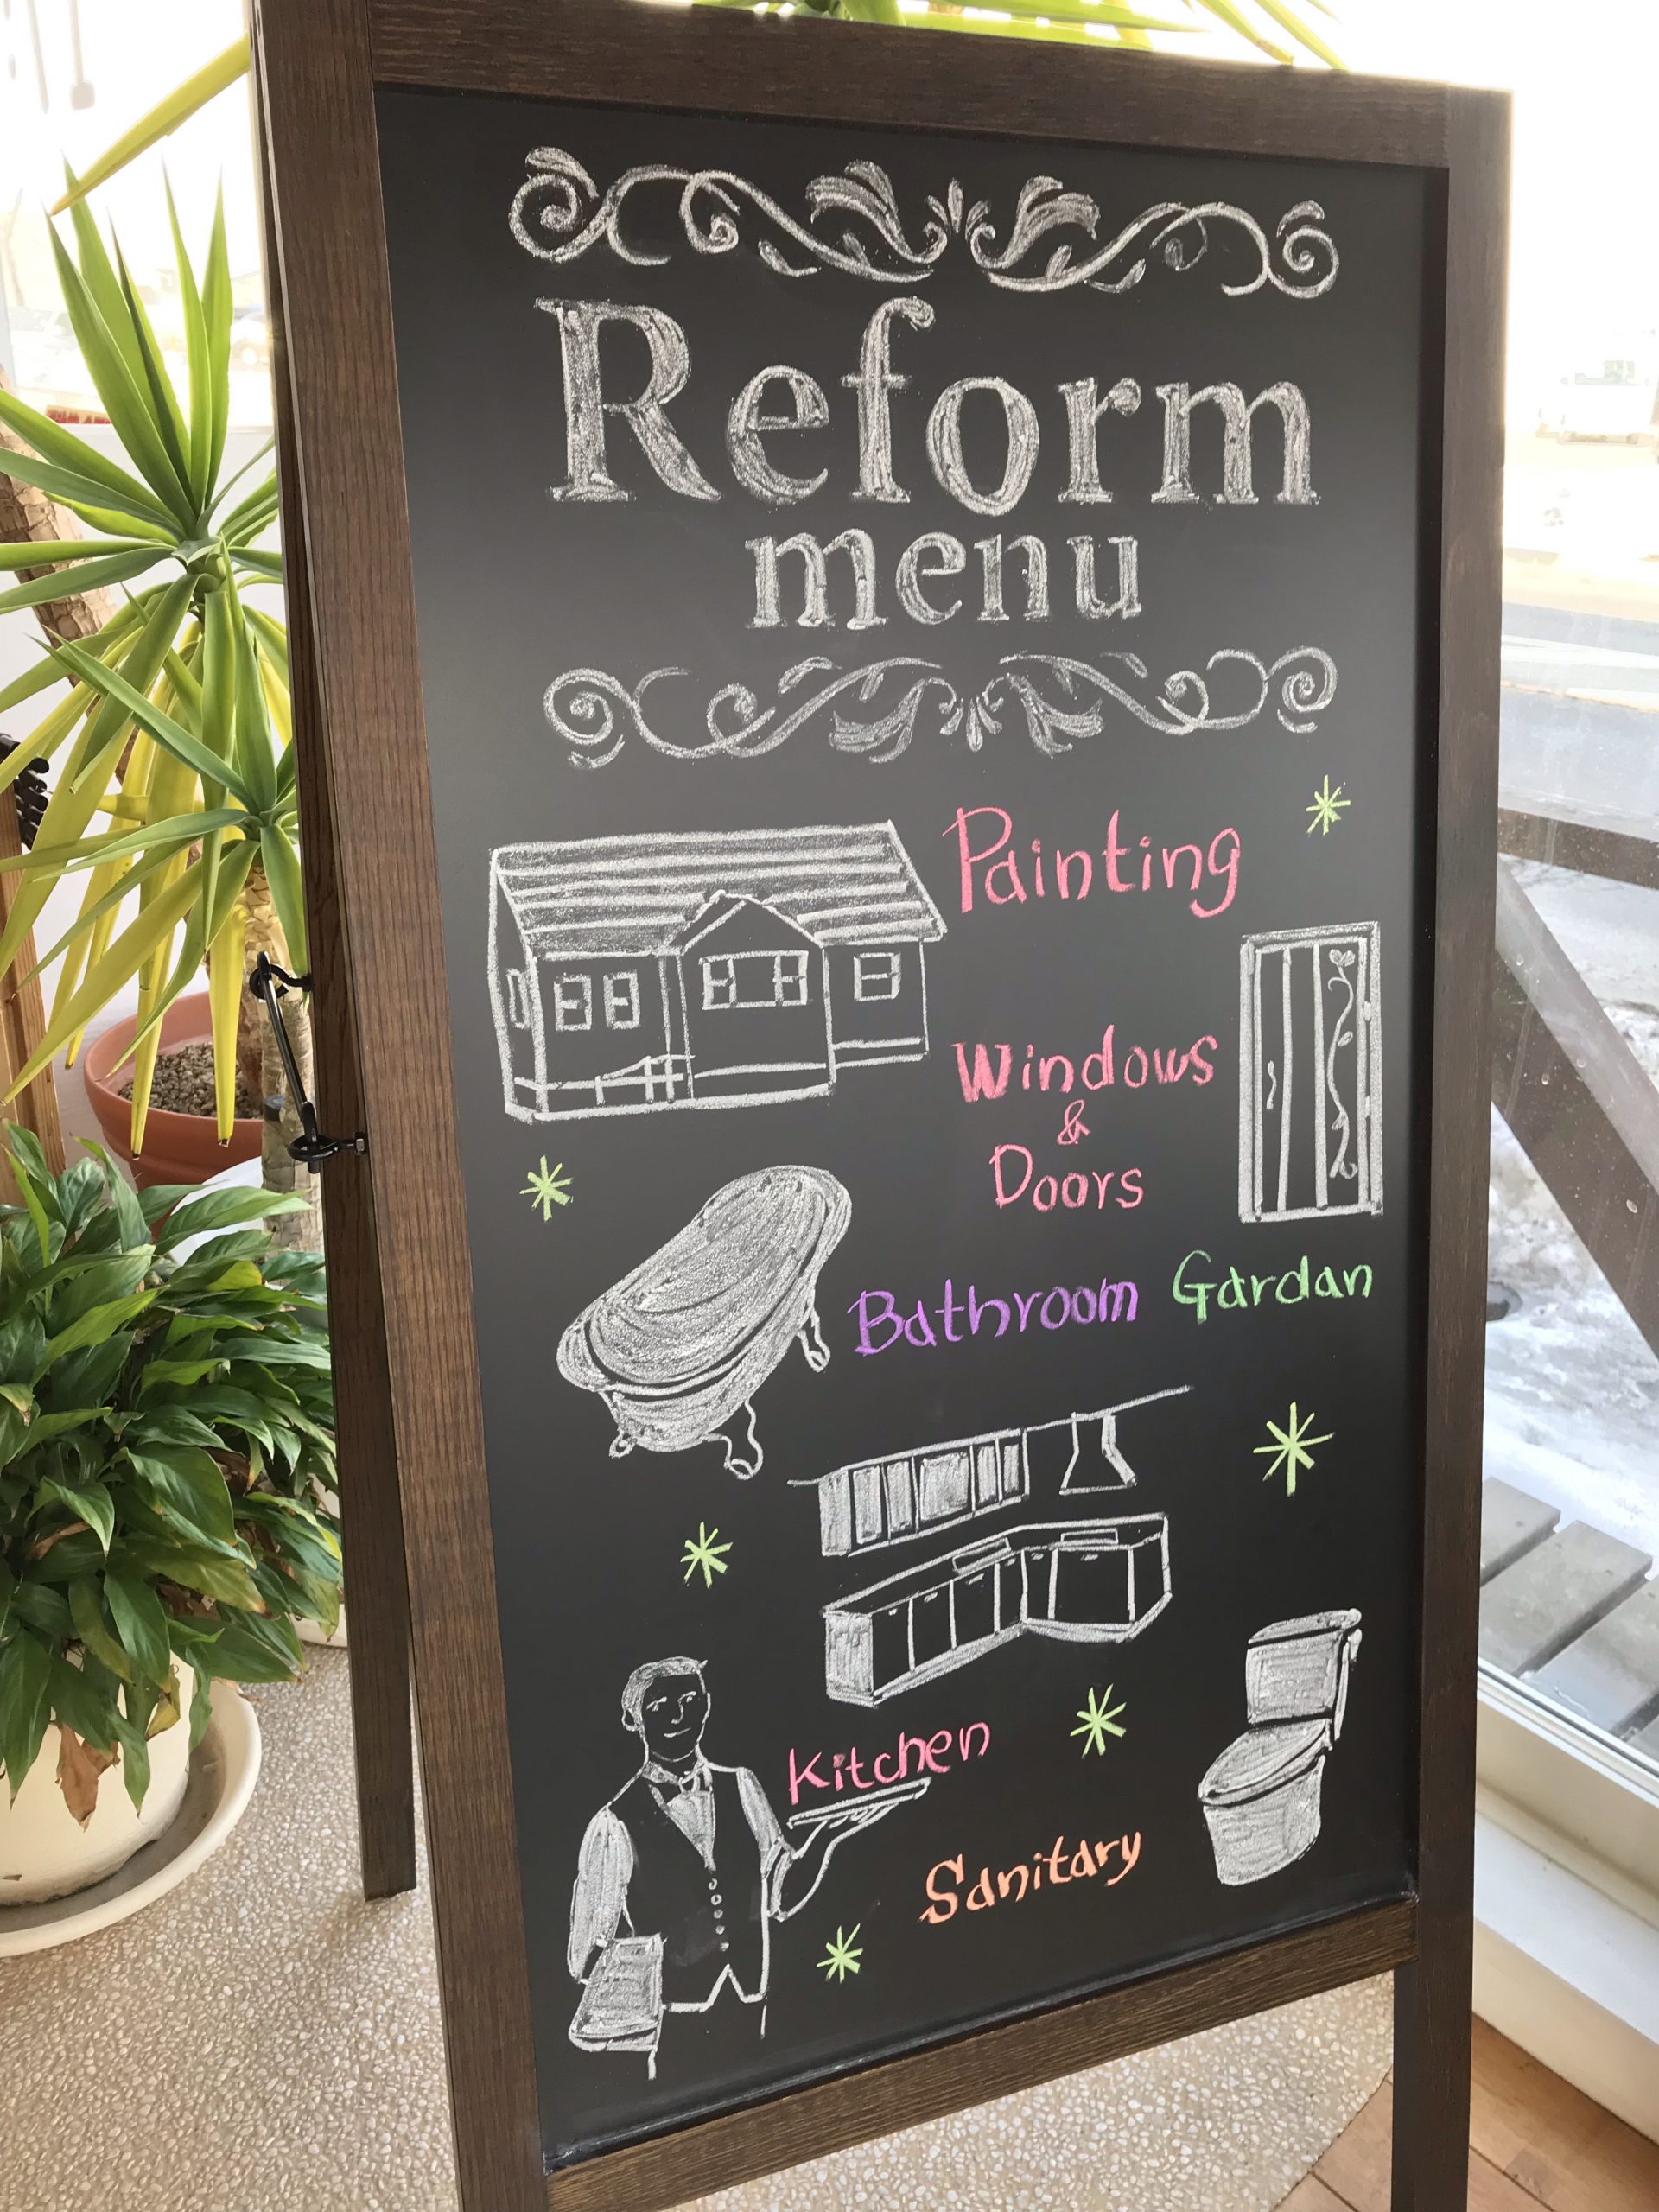 Reform
menu
Painting
Windows
&
Doors
Bathroom
Gardan
Kitchen
Sanitary